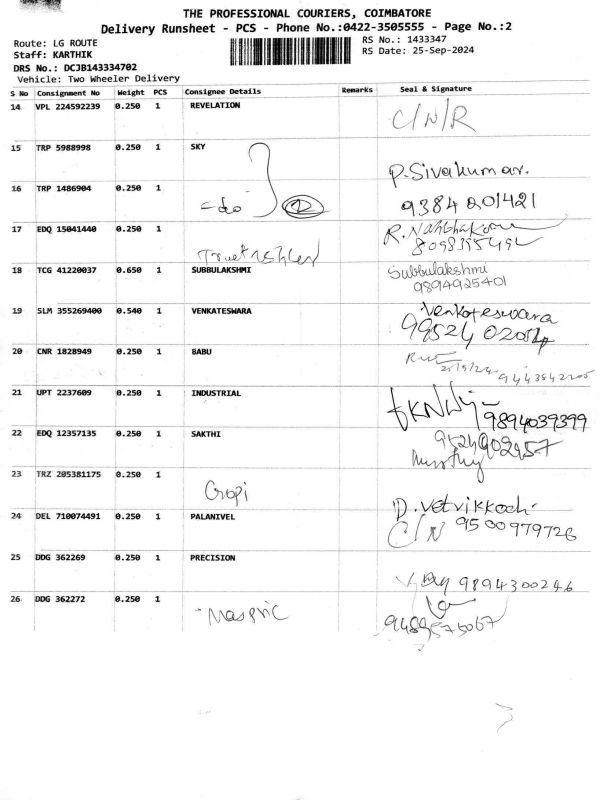 THE PROFESSIONAL COURIERS, COIMBATORE
Delivery Runsheet - PCS - Phone No.:0422-3505555 - Page No.:2
Route: LG ROUTE
RS No.: 1433347
Staff: KARTHIK
RS Date: 25-Sep-2024
DRS No.: DCJB143334702
Vehicle: Two Wheeler Delivery
S No Consignment No Weight PCS Consignee Details Remarks Seal & Signature
14 VPL 224592239 0.250 1 REVELATION C/N/R
15 TRP 5988998 0.250 1 SKY
P. Sivakumar.
16 TRP 1486904 0.250 1 9384201421
17 EDQ 15041440 0.250 1
18 TCG 41220037 0.650 1 SUBBULAKSHMI Subbulakshmi
9894925401
19 SLM 355269400 0.540 1 VENKATESWARA Venkateswara
20 CNR 1828949 0.250 1 BABU
21 UPT 2237609 0.250 1 INDUSTRIAL 9894039399
22 EDQ 12357135 0.250 1 SAKTHI
23 TRZ 205381175 0.250 1 Gopi
24 DEL 710074491 0.250 1 PALANIVEL
C/N 9500979726
25 DDG 362269 0.250 1 PRECISION
9894300246
26 DDG 362272 0.250 1